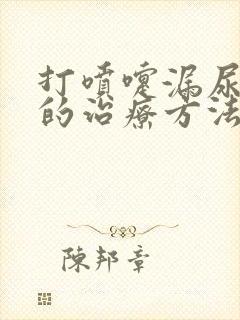 打噴嚏漏尿
的治療方法
陳邦章